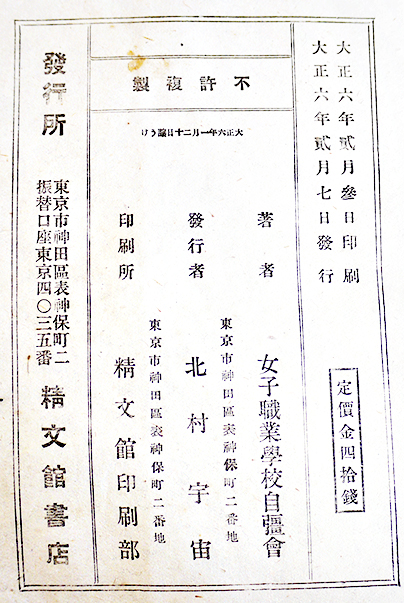 大正六年貳月參日印刷
大正六年貳月七日發行
定價金四拾錢
不許複製
大正六年一月二十日謄うけ
著者
女子職業學校自彊會
東京市神田區表神保町二番地
發行者
北村宇宙
東京市神田區表神保町二番地
印刷所
精文館印刷部
發行所
東京市神田區表神保町二
振替口座東京四〇三五番
精文館書店